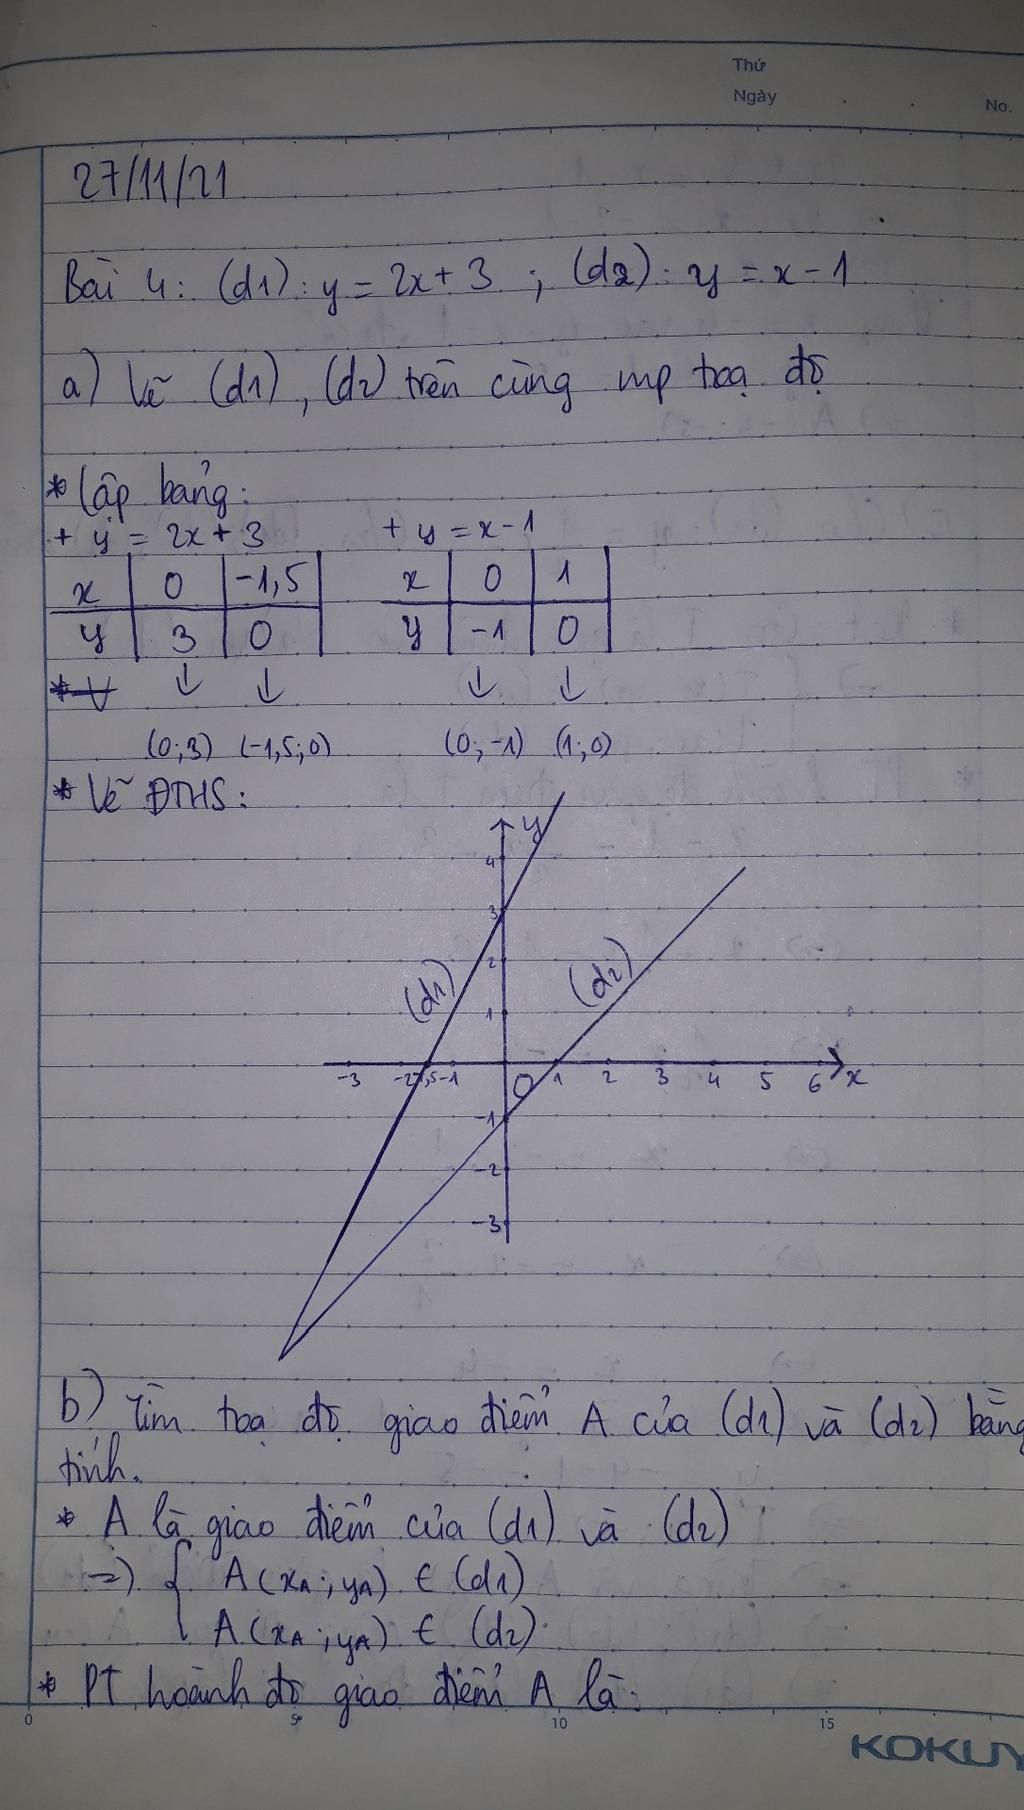 Thứ
Ngày
No.
27/11/21
Bài 4: (d1): y = 2x + 3 ; (d2): y = x - 1
a) Vẽ (d1), (d2) trên cùng mp toạ độ
* Lập bảng:
+ y = 2x + 3 + y = x - 1
x 0 -1,5 x 0 1
y 3 0 y -1 0
↓ ↓ ↓ ↓
(0;3) (-1,5;0) (0;-1) (1;0)
* Vẽ ĐTHS:
y
4
3
2
(d1) (d2)
1
-3 -2 -1,5 -1 O 1 2 3 4 5 6 x
-1
-2
-3
b) Tìm toạ độ giao điểm A của (d1) và (d2) bằng
tính.
* A là giao điểm của (d1) và (d2)
=> { A(xA; yA) ∈ (d1)
A(xA; yA) ∈ (d2)
* PT hoành độ giao điểm A là:
0 5 10 15
KOKUY